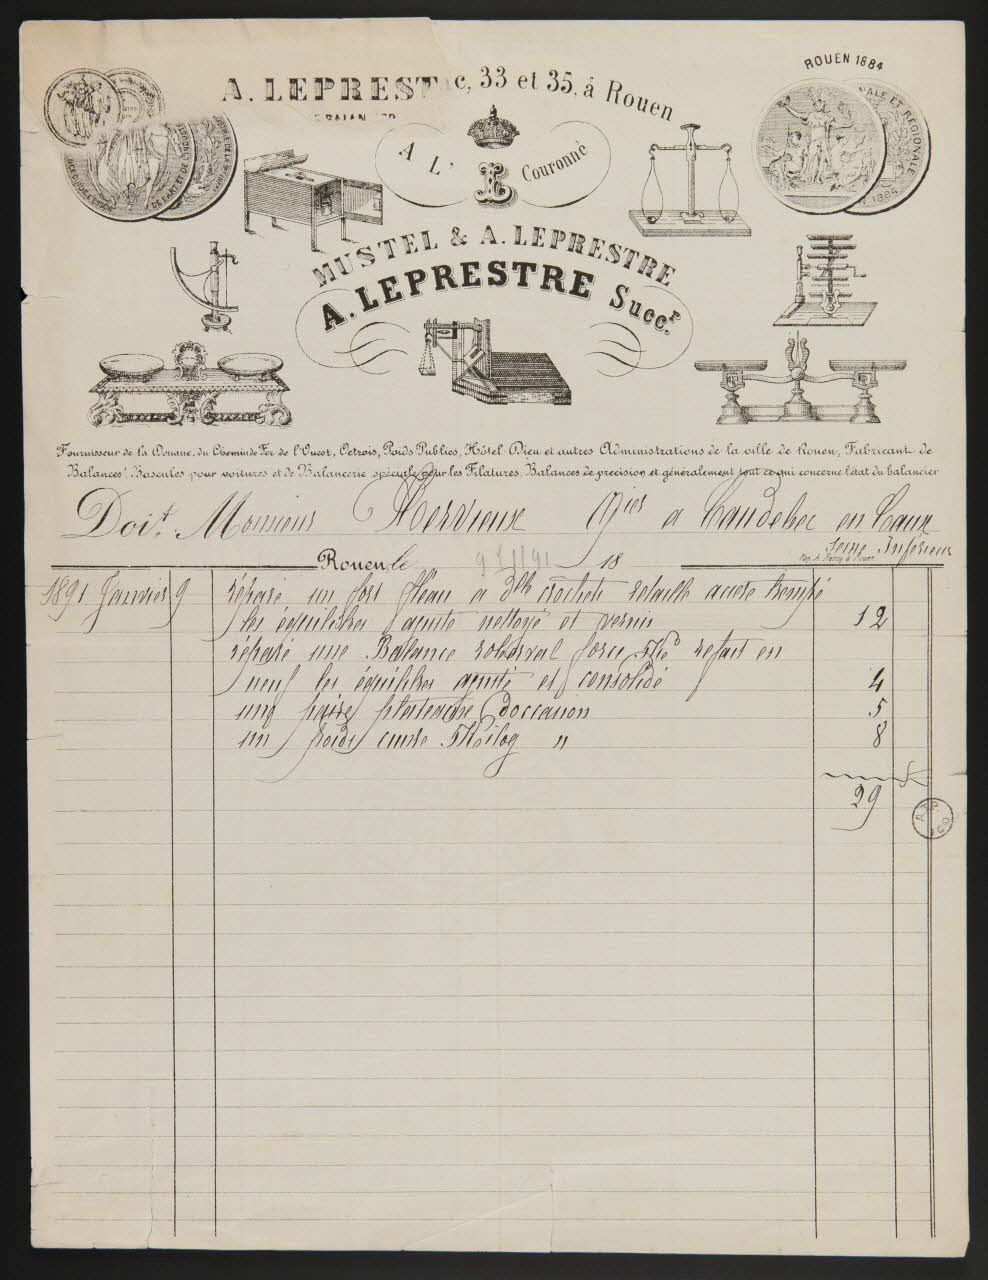 ROUEN 1884
A. LEPREST c, 33 et 35, à Rouen
A L' L Couronné
NALE ET REGIONALE
1885
MUSTEL & A. LEPRESTRE
A. LEPRESTRE Succ.r
Fournisseur de la Douane, du Chemin de Fer de l'Ouest, Octrois, Poids Publics, Hôtel Dieu et autres Administrations de la ville de Rouen, Fabricant de
Balances, Bascules pour voitures et de Balancerie spéciale pour les Filatures, Balances de precision et généralement tout ce qui concerne l'état du balancier
Doit Monsieur Hervieux à Caudebec en Caux
Seine Inférieure
Rouen, le 9 18
1891 Janvier 9 réparé un fort fléau a dble crochets retaillé acere trempé
les équilibres ajusté nettoyé et verni 12
réparé une Balance roberval force refait en
neuf les équilibres ajusté et consolidé 4
une paire d'occasion 5
un poids cuivre Kilog " 8
29